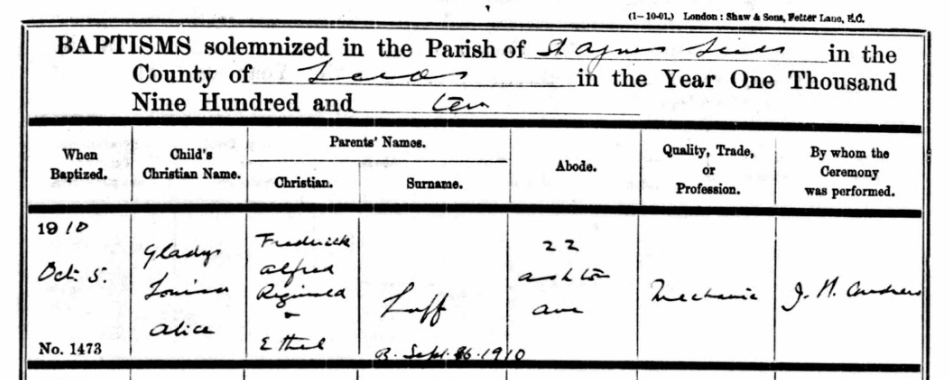 (1—10-01.) London: Shaw & Sons, Fetter Lane, E.C.
BAPTISMS solemnized in the Parish of St Agnes Leeds in the
County of Leeds in the Year One Thousand
Nine Hundred and ten
When Baptized.
Child's Christian Name.
Parents' Names.
Christian.
Surname.
Abode.
Quality, Trade, or Profession.
By whom the Ceremony was performed.
1910
Oct: 5.
No. 1473
Gladys
Louisa
Alice
Frederick
Alfred
Reginald
+
Ethel
Luff
B. Sept. 1910
22
Ashton
Ave
Mechanic
J. H.